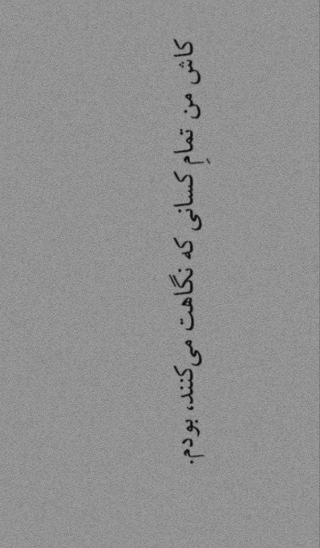 کاش من تمامِ کسانی که نگاهت می‌کنند، بودم.